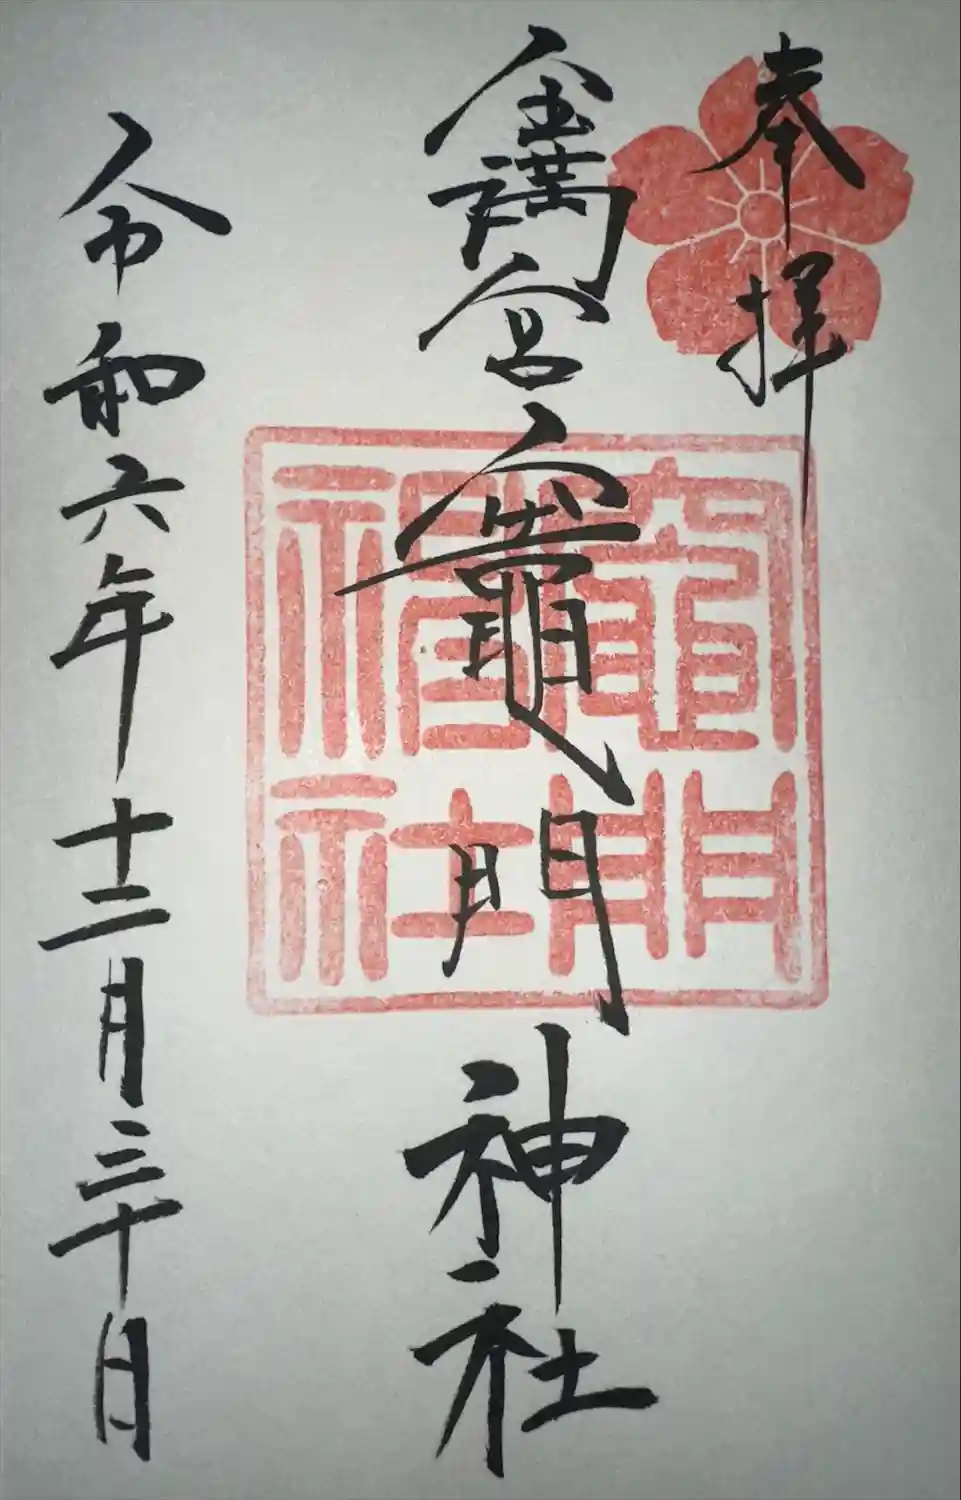 奉拝
宝満宮竈門神社
令和六年十二月三十日
竈門
神社